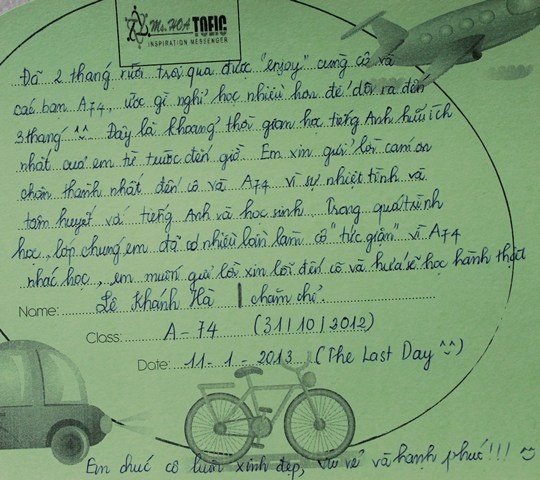 Ms. HOA TOEIC
INSPIRATION MESSENGER
Đã 2 tháng rưỡi trôi qua được "enjoy" cùng cô và
các bạn A74, ước gì nghỉ học nhiều hơn để dôi ra đến
3 tháng ^^. Đây là khoảng thời gian học tiếng Anh hữu ích
nhất của em từ trước đến giờ. Em xin gửi lời cảm ơn
chân thành nhất đến cô và A74 vì sự nhiệt tình và
tâm huyết với tiếng Anh và học sinh. Trong quá trình
học, lớp chúng em đã có nhiều lần làm cô "tức giận" vì A74
nhác học, em muốn gửi lời xin lỗi đến cô và hứa sẽ học hành thật
Name: Lê Khánh Hà | chăm chỉ.
Class: A-74 (31/10/2012)
Date: 11-1-2013 (The Last Day ^^)
Em chúc cô luôn xinh đẹp, vui vẻ và hạnh phúc!!!